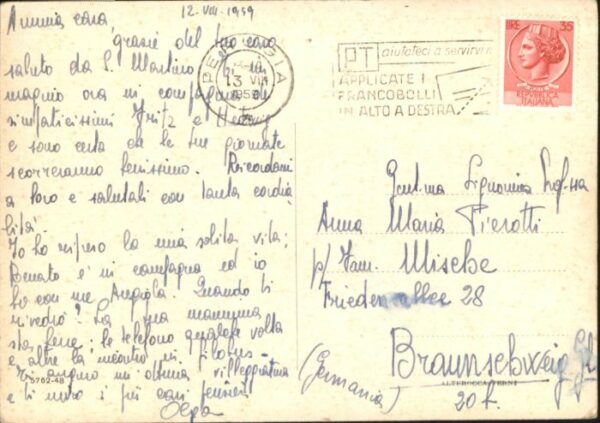 12-VIII-1959
Annina cara,
grazie del tuo caro
saluto da S. Martino. Ti im
magino ora in compagnia di
simpaticissimi Fritz e Hedwig
e sono certa che le tue giornate
scorreranno benissimo. Ricordami
a loro e salutali con tanta cordia
lità.
Io ho ripreso la mia solita vita;
Renato è in campagna ed io
ho con me Angiola. Quando ti
rivedrò? La tua mamma
sta bene; le telefono qualche volta
e altre la incontro in
Ti auguro un ottima villeggiatura
e ti invio i più cari pensieri
Olga
5762-48
PERUGIA
13 VIII
1959
PT aiutateci a servirvi
APPLICATE I
FRANCOBOLLI
IN ALTO A DESTRA
LIRE 35
POSTE
REPVBBLICA
ITALIANA
Gent.ma Signorina Prof.ssa
Anna Maria Pierotti
p/ Fam. Mische
Friedensallee 28
(Germania)
Braunschweig
ALTEROCCA TERNI
20 f.